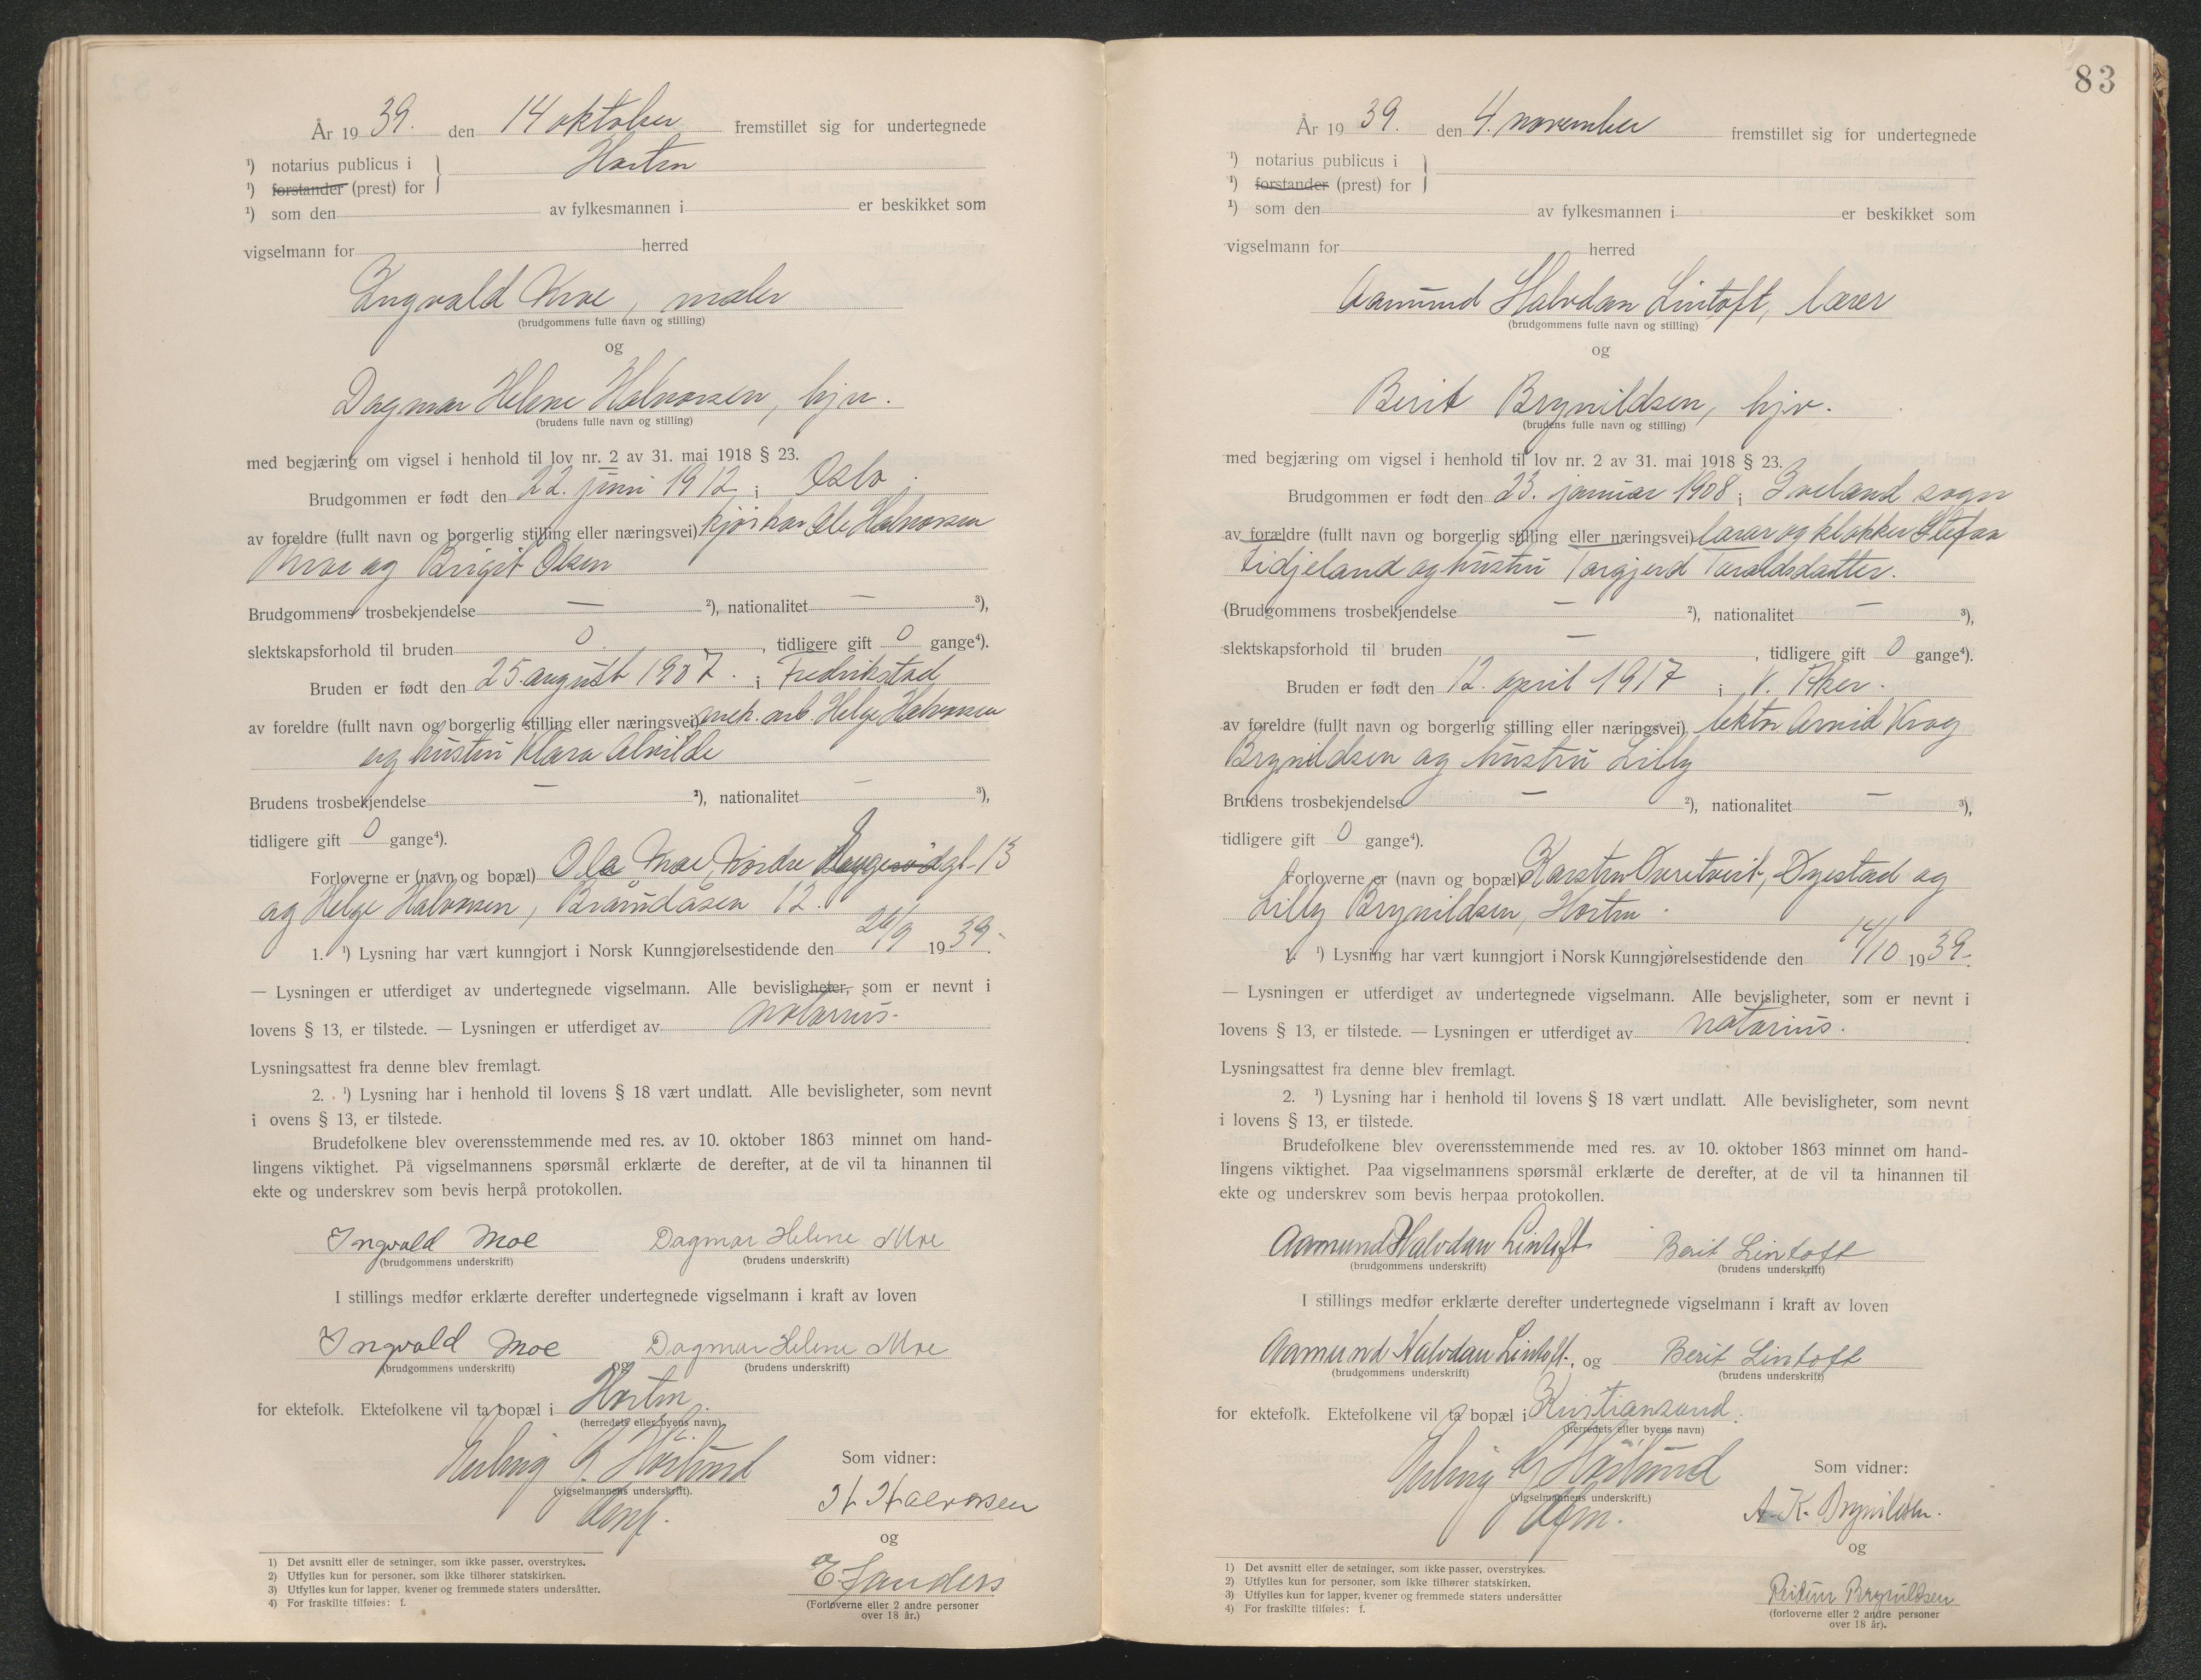 År 1939. den 14 oktober fremstillet sig for undertegnede
¹) notarius publicus i Horten
¹) forstander (prest) for
¹) som den av fylkesmannen i er beskikket som
vigselmann for herred
Ingvald Moe, maler
(brudgommens fulle navn og stilling)
og
Dagmar Helene Halvorsen, hjv.
(brudens fulle navn og stilling)
med begjæring om vigsel i henhold til lov nr. 2 av 31. mai 1918 § 23.
Brudgommen er født den 22. juni 1912 i Oslo
av foreldre (fullt navn og borgerlig stilling eller næringsvei) Ole Halvorsen
Moe og Birgit Olsen
Brudgommens trosbekjendelse — ²), nationalitet — ³),
slektskapsforhold til bruden 0, tidligere gift 0 gange⁴).
Bruden er født den 25. august 1907. i Fredrikstad
av foreldre (fullt navn og borgerlig stilling eller næringsvei) mek. arb. Helge Halvorsen
og hustru Klara Alvilde
Brudens trosbekjendelse — ²), nationalitet — ³),
tidligere gift 0 gange⁴).
Forloverne er (navn og bopæl) Ola Moe, Nordre 13
og Helge Halvorsen, Bråndåsen 12.
1. ¹) Lysning har vært kunngjort i Norsk Kunngjørelsestidende den 26/9 1939.
— Lysningen er utferdiget av undertegnede vigselmann. Alle bevisligheter, som er nevnt i
lovens § 13, er tilstede. — Lysningen er utferdiget av notarius.
Lysningsattest fra denne blev fremlagt.
2. ¹) Lysning har i henhold til lovens § 18 vært undlatt. Alle bevisligheter, som nevnt
i ovens § 13, er tilstede.
Brudefolkene blev overensstemmende med res. av 10. oktober 1863 minnet om hand-
lingens viktighet. På vigselmannens spørsmål erklærte de derefter, at de vil ta hinannen til
ekte og underskrev som bevis herpå protokollen.
Ingvald Moe Dagmar Helene Moe
(brudgommens underskrift) (brudens underskrift)
I stillings medfør erklærte derefter undertegnede vigselmann i kraft av loven
Ingvald Moe og Dagmar Helene Moe
(brudgommens underskrift) (brudens underskrift)
for ektefolk. Ektefolkene vil ta bopæl i Horten.
(herredets eller byens navn)
Som vidner:
(vigselmannens underskrift).
H Halvorsen
og
E. Sanders
(Forloverne eller 2 andre personer
over 18 år.)
1) Det avsnitt eller de setninger, som ikke passer, overstrykes.
2) Utfylles kun for personer, som ikke tilhører statskirken.
3) Utfylles kun for lapper, kvener og fremmede staters undersåtter.
4) For fraskilte tilføies: f.
83
År 1939. den 4. november fremstillet sig for undertegnede
¹) notarius publicus i
¹) forstander (prest) for
¹) som den av fylkesmannen i er beskikket som
vigselmann for herred
Aamund Halvdan Lintoft, lærer
(brudgommens fulle navn og stilling)
og
Berit Brynildsen, hjv.
(brudens fulle navn og stilling)
med begjæring om vigsel i henhold til lov nr. 2 av 31. mai 1918 § 23.
Brudgommen er født den 23. januar 1908 i Iveland sogn
av forældre (fullt navn og borgerlig stilling eller næringsvei) lærer og klokker Stefan
Tidjeland og hustru Torgjerd Taraldsdatter.
(Brudgommens trosbekjendelse — ²), nationalitet — ³),
slektskapsforhold til bruden —, tidligere gift 0 gange⁴).
Bruden er født den 12. april 1917 i V. Aker.
av foreldre (fullt navn og borgerlig stilling eller næringsvei) lektor Arnid Krog
Brynildsen og hustru Lilly
Brudens trosbekjendelse — ²), nationalitet — ³),
tidligere gift 0 gange⁴).
Forloverne er (navn og bopæl) Karsten Overtveit, Øyestad og
Lilly Brynildsen, Horten.
1. ¹) Lysning har vært kunngjort i Norsk Kunngjørelsestidende den 14/10 1939.
— Lysningen er utferdiget av undertegnede vigselmann. Alle bevisligheter, som er nevnt i
lovens § 13, er tilstede. — Lysningen er utferdiget av notarius.
Lysningsattest fra denne blev fremlagt.
2. ¹) Lysning har i henhold til lovens § 18 vært undlatt. Alle bevisligheter, som nevnt
i lovens § 13, er tilstede.
Brudefolkene blev overensstemmende med res. av 10. oktober 1863 minnet om hand-
lingens viktighet. Paa vigselmannens spørsmål erklærte de derefter, at de vil ta hinannen til
ekte og underskrev som bevis herpaa protokollen.
Aamund Halvdan Lintoft Berit Lintoft
(brudgommens underskrift) (brudens underskrift)
I stillings medfør erklærte derefter undertegnede vigselmann i kraft av loven
Aamund Halvdan Lintoft, og Berit Lintoft
(brudgommens underskrift) (brudens underskrift)
for ektefolk. Ektefolkene vil ta bopæl i Kristiansand.
(herredets eller byens navn)
Som vidner:
(vigselmannens underskrift.)
A. K. Brynildsen.
og
Reidun Brynildsen
(forloverne eller 2 andre personer
over 18 år).
1) Det avsnitt eller de setninger, som ikke passer, overstrykes.
2) Utfylles kun for personer, som ikke tilhører statskirken.
3) Utfylles kun for lapper, kvener og fremmede staters undersåtter
4) For fraskilte tilføies: f.